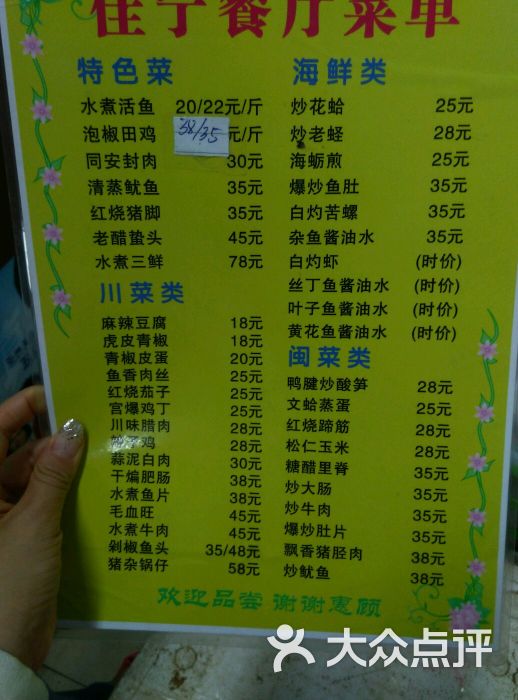 佳宁餐厅菜单
特色菜
水煮活鱼 20/22元/斤
泡椒田鸡 38/35元/斤
同安封肉 30元
清蒸鱿鱼 35元
红烧猪脚 35元
老醋蛰头 45元
水煮三鲜 78元
川菜类
麻辣豆腐 18元
虎皮青椒 18元
青椒皮蛋 20元
鱼香肉丝 25元
红烧茄子 25元
宫爆鸡丁 25元
川味腊肉 28元
辣子鸡 28元
蒜泥白肉 30元
干煸肥肠 38元
水煮鱼片 38元
毛血旺 45元
水煮牛肉 45元
剁椒鱼头 35/48元
猪杂锅仔 58元
海鲜类
炒花蛤 25元
炒老蛏 28元
海蛎煎 25元
爆炒鱼肚 35元
白灼苦螺 35元
杂鱼酱油水 35元
白灼虾 (时价)
丝丁鱼酱油水 (时价)
叶子鱼酱油水 (时价)
黄花鱼酱油水 (时价)
闽菜类
鸭腱炒酸笋 28元
文蛤蒸蛋 25元
红烧蹄筋 28元
松仁玉米 28元
糖醋里脊 35元
炒大肠 35元
炒牛肉 35元
爆炒肚片 35元
飘香猪胫肉 38元
炒鱿鱼 38元
欢迎品尝 谢谢惠顾
大众点评